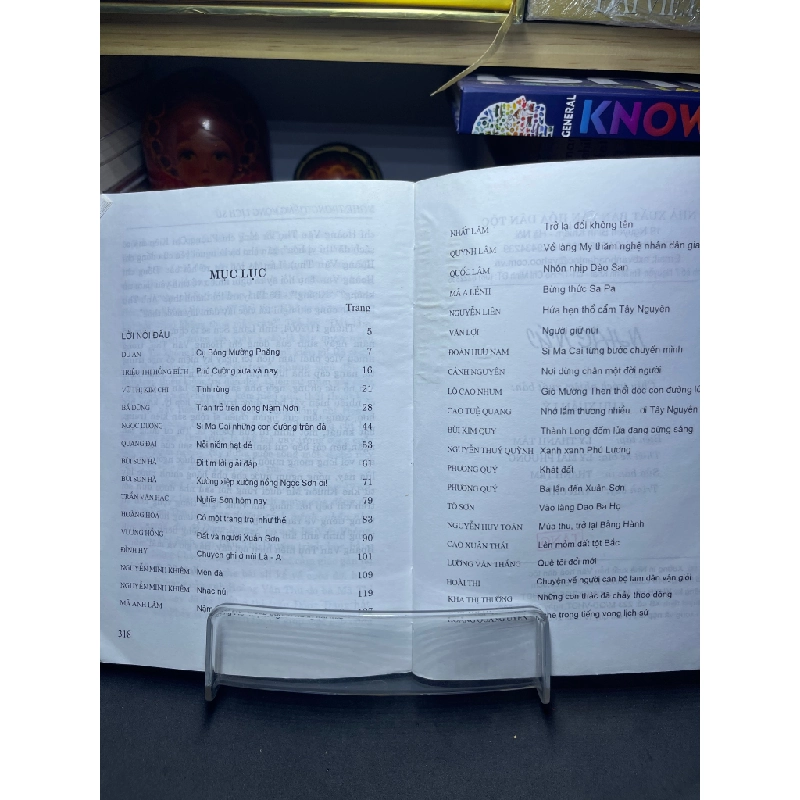 GENERAL
KNOW
MỤC LỤC
Trang
LỜI NÓI ĐẦU 5
DU AN Cụ Bảng Mường Phăng 7
TRIỆU THỊ HỒNG BÍCH Phú Cường xưa và nay 16
VŨ THỊ KIM CHI Tình rừng 21
BÁ DŨNG Trăn trở trên dòng Nậm Nơn 28
NGỌC DƯƠNG Si Ma Cai những con đường trên đá 44
QUANG ĐẠI Nỗi niềm hạt dẻ 53
BÙI SƠN HÀ Đi tìm lời giải đáp 61
BÙI SƠN HÀ Xường xiệp xường nồng Ngọc Sơn ơi! 71
TRẦN VÂN HẠC Nghĩa Sơn hôm nay 79
HOÀNG HOA Có một trang trại như thế 83
VƯƠNG HỒNG Đất và người Xuân Sơn 90
ĐÌNH HY Chuyện ghi ở núi Là - A 101
NGUYỄN MINH KHIÊM Men đá 109
NGUYỄN MINH KHIÊM Nhạc nứ 119
MÃ ANH LÂM Nậm
318
NHẤT LÂM Trở lại đồi không tên
QUỲNH LÂM Về làng Mỵ thăm nghệ nhân dân gia
QUỐC LÂM Nhộn nhịp Dào San
MÃ A LỀNH Bừng thức Sa Pa
NGUYỄN LIÊN Hứa hẹn thổ cẩm Tây Nguyên
VĂN LỢI Người giữ núi
ĐOÀN HỮU NAM Si Ma Cai từng bước chuyển mình
CẢNH NGUYÊN Nơi dừng chân một đời người
LÒ CAO NHUM Gió Mường Then thổi dọc con đường lử
CAO TUỆ QUANG Nhớ lắm thương nhiều Tây Nguyên
BÙI KIM QUY Thành Long đốm lửa đang bừng sáng
NGUYỄN THUÝ QUỲNH Xanh xanh Phú Lương
PHƯƠNG QUÝ Khát đất
PHƯƠNG QUÝ Ba lần đến Xuân Sơn
TÔ SƠN Vào làng Dao Ba Họ
NGUYỄN HUY TOÁN Mùa thu, trở lại Bằng Hành
CAO XUÂN THÁI Lên mỏm đất tột Bắc
LƯƠNG VĂN THĂNG Quê tôi đổi mới
HOÀI THI Chuyện về người cán bộ làm dân vận giỏi
KHA THỊ THƯỜNG Những con thác đã chảy theo dòng
trong tiếng vọng lịch sử